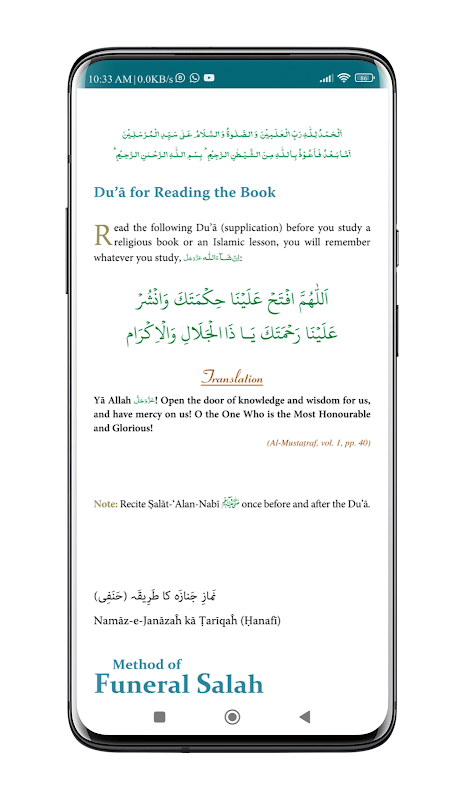 10:33 AM | 0.0KB/s
اَلْحَمْدُ لِلّٰهِ رَبِّ الْعٰلَمِيْنَ وَ الصَّلٰوةُ وَ السَّلَامُ عَلٰى سَيِّدِ الْمُرْسَلِيْنَ
اَمَّا بَعْدُ فَاَعُوْذُ بِاللّٰهِ مِنَ الشَّيْطٰنِ الرَّجِيْمِ ؕ بِسْمِ اللّٰهِ الرَّحْمٰنِ الرَّحِيْمِ ؕ
Du’ā for Reading the Book
Read the following Du’ā (supplication) before you study a
religious book or an Islamic lesson, you will remember
whatever you study, اِنْ شَــآءَالله عَزَّوَجَلَّ:
اَللّٰهُمَّ افْتَحْ عَلَيْنَا حِكْمَتَكَ وَانْشُرْ
عَلَيْنَا رَحْمَتَكَ يَـا ذَا الْجَلَالِ وَالْاِكْرَام
Translation
Yā Allah عَزَّوَجَلَّ! Open the door of knowledge and wisdom for us,
and have mercy on us! O the One Who is the Most Honourable
and Glorious!
(Al-Mustaṭraf, vol. 1, pp. 40)
Note: Recite Ṣalāt-‘Alan-Nabī ﷺ once before and after the Du’ā.
نَمازِ جَنازَہ کا طَرِیقَہ (حَنَفِی)
Namāz-e-Janāzaĥ kā Ṭarīqaĥ (Ḥanafī)
Method of
Funeral Salah